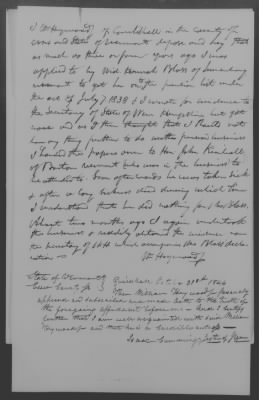 I Wm Heywood Jr of Guildhall in the County of
Essex and State of Vermont depose and say that
as much as three or four years ago I was
applied to by Wid Hannah Bloss of
Vermont to get her on the pension list under
the act of July 7 1838 & I wrote for evidence to
the Secretary of State of New Hampshire but got
none and as I then thought that I should not
have any thing further to do with pension business
I handed the papers over to Hon John Kimball
of Vermont who was in the business to
be attended to. Soon afterwards he was taken sick
& after a long sickness died during which time
I understand that he did nothing for Mrs Bloss.
About two months ago I again undertook
the business & readily obtained the evidence from
the Secretary of NH which accompanies Mrs Bloss decla-
ration —
Wm Heywood Jr
State of Vermont
Essex County ss
Guildhall Oct 31st 1844
Then William Heywood Jr personally
appeared and subscribed and made oath to the truth of
the foregoing affidavit before me — And I certify
further that I am well acquainted with said William
Heywood Jr and that he is a credible witness —
Justice of Peace